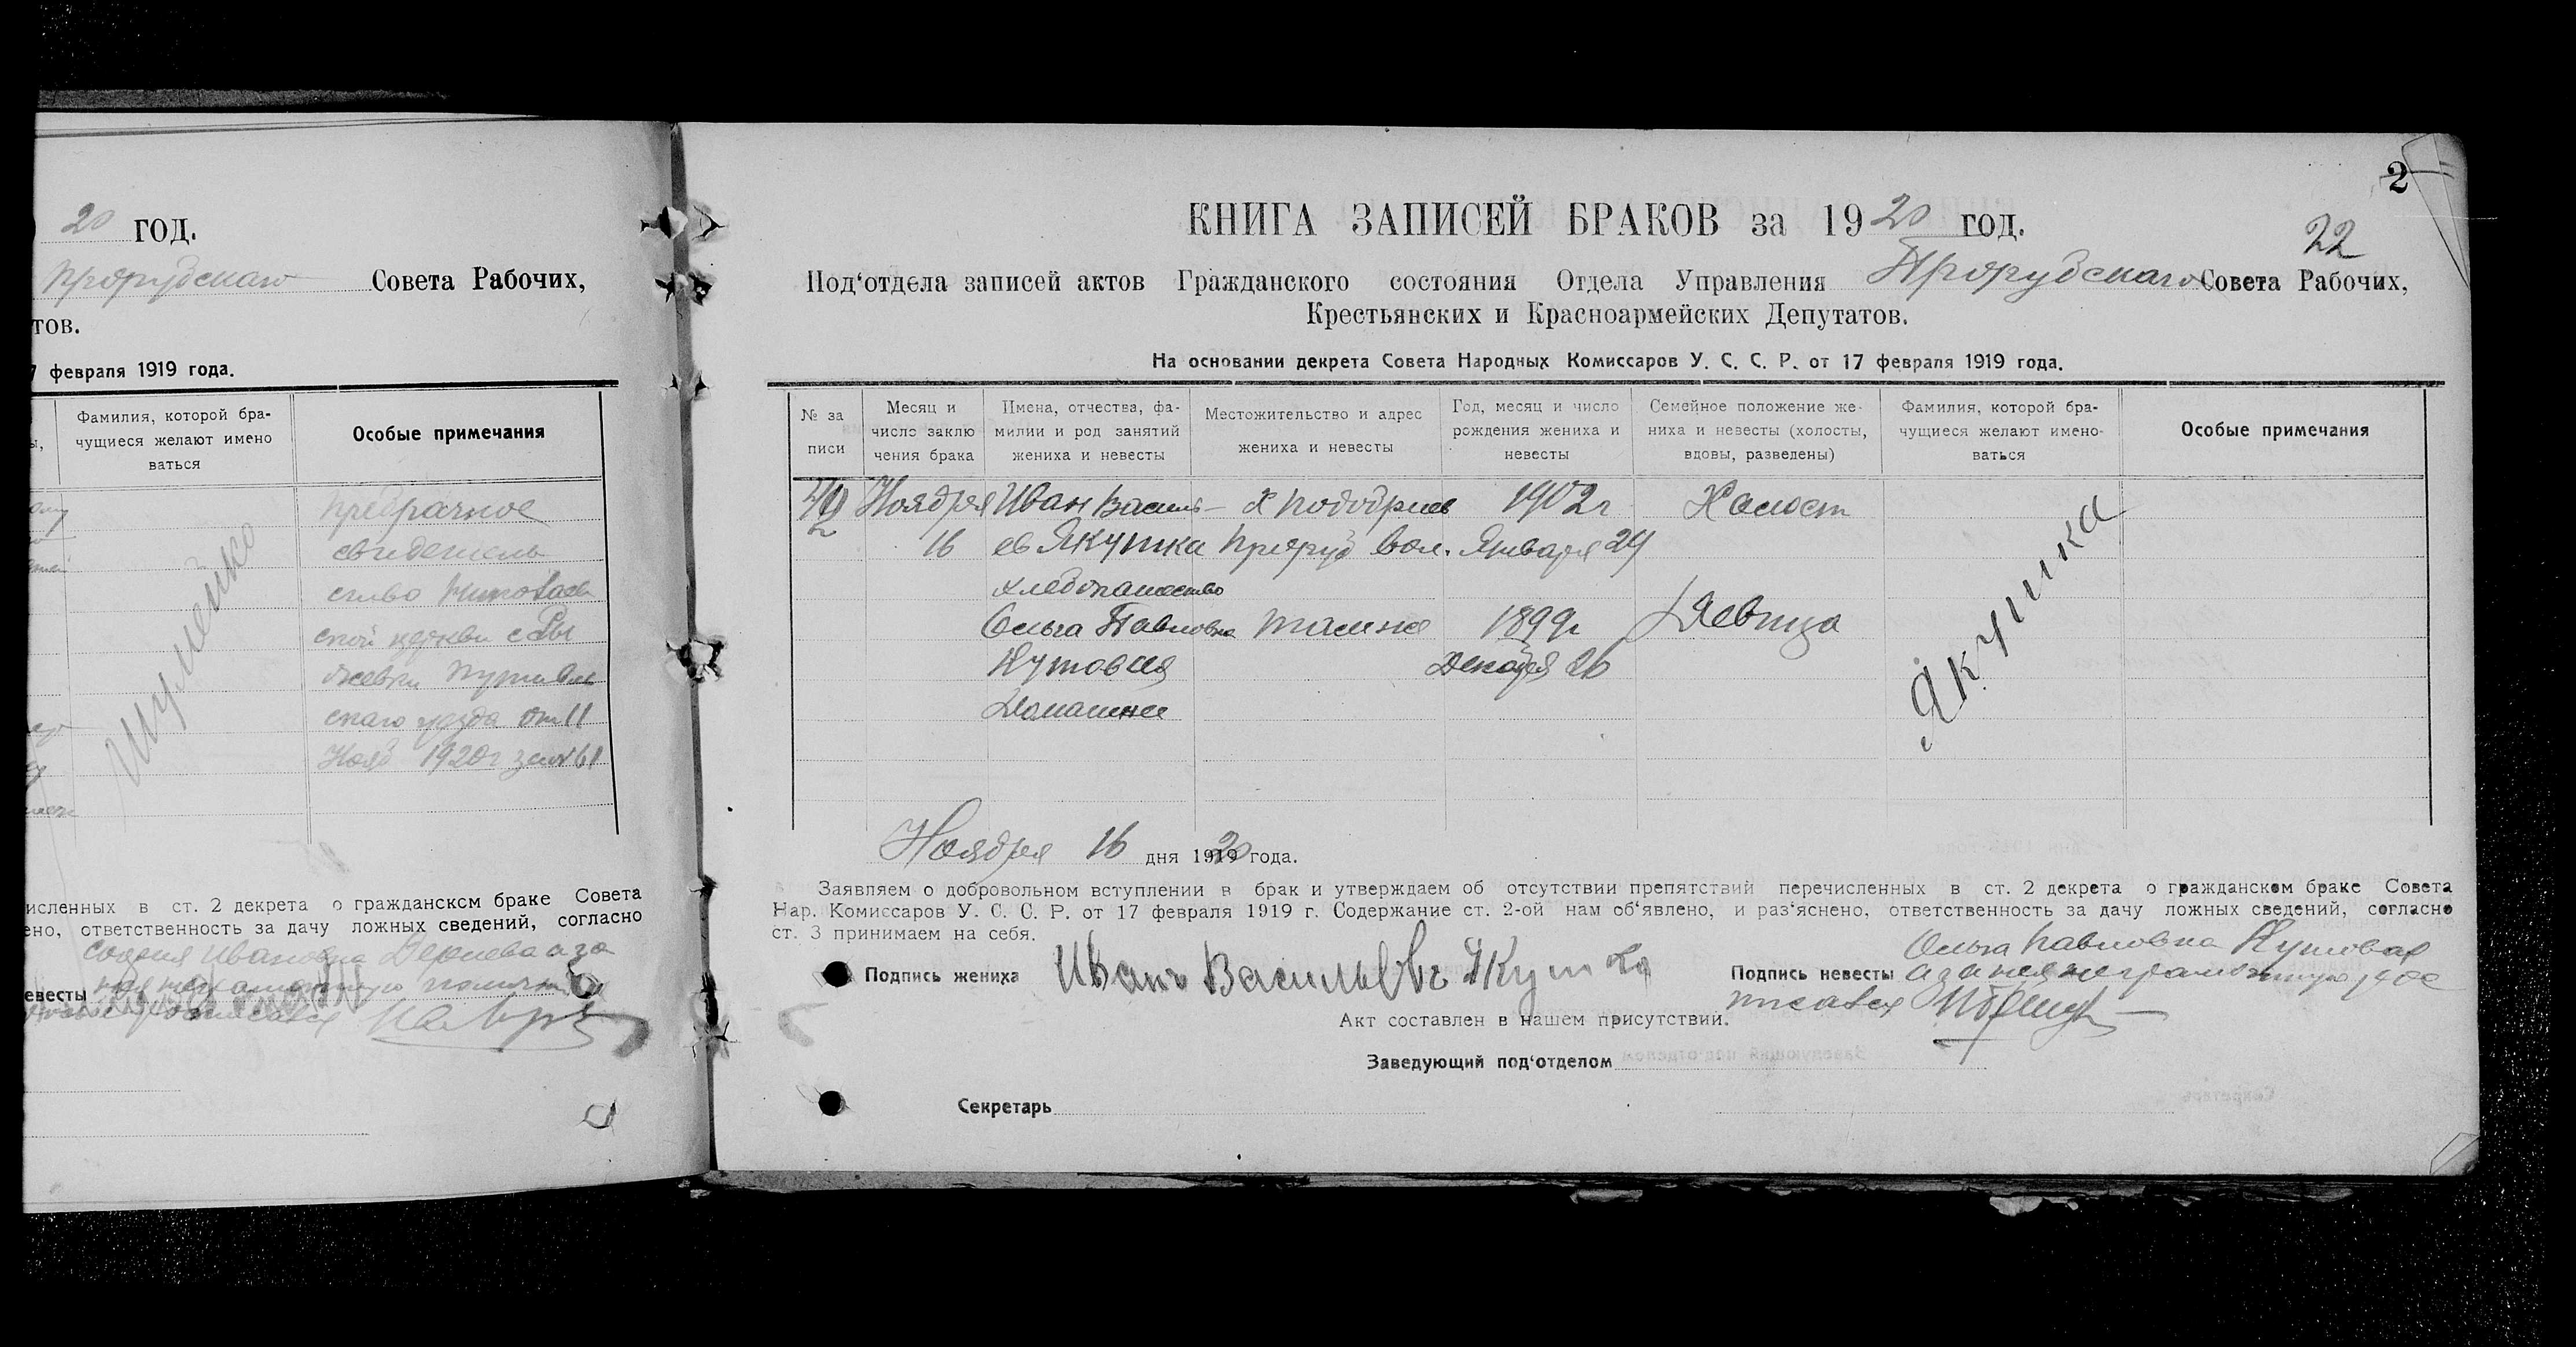 20 год.
Прорубскаго Совета Рабочих,
тов.
7 февраля 1919 года.
Фамилия, которой бра-
чущиеся желают имено
ваться
Особые примечания
Шулейко
предбрачное
свидетель
ство Николаев
ской церкви с Ры
жевки Путивль
скаго уезда от 11
Нояб 1920г за № 61
исленных в ст. 2 декрета о гражданском браке Совета
ено, ответственность за дачу ложных сведений, согласно
София Ивановна
евесты
2
22
КНИГА ЗАПИСЕЙ БРАКОВ за 1920 год.
Под‘отдела записей актов Гражданского состояния Отдела Управления Прорубскаго Совета Рабочих,
Крестьянских и Красноармейских Депутатов.
На основании декрета Совета Народных Комиссаров У. С. С. Р. от 17 февраля 1919 года.
№ за
писи
Месяц и
число заклю
чения брака
Имена, отчества, фа-
милии и род занятий
жениха и невесты
Местожительство и адрес
жениха и невесты
Год, месяц и число
рождения жениха и
невесты
Семейное положение же-
ниха и невесты (холосты,
вдовы, разведены)
Фамилия, которой бра-
чущиеся желают имено-
ваться
Особые примечания
Ноября Иван Василь- х 1902г Холост
16 ев Якушка Проруб вол. Января 29
хлебопашество
Ольга Павловна тоже 1899г Девица
Кутовая Декабря 26
Домашнее
Якушка
Ноября 16 дня 1920 года.
Заявляем о добровольном вступлении в брак и утверждаем об отсутствии препятствий перечисленных в ст. 2 декрета о гражданском браке Совета
Нар. Комиссаров У. С. С. Р. от 17 февраля 1919 г. Содержание ст. 2-ой нам об‘явлено, и раз‘яснено, ответственность за дачу ложных сведений, согласно
ст. 3 принимаем на себя.
Подпись жениха Иванъ Васильевъ Якушка
Ольга Павловна Кутовая
Подпись невесты а за нея неграмотную рос
писался
Акт составлен в нашем присутствий.
Заведующий под‘отделом
Секретарь